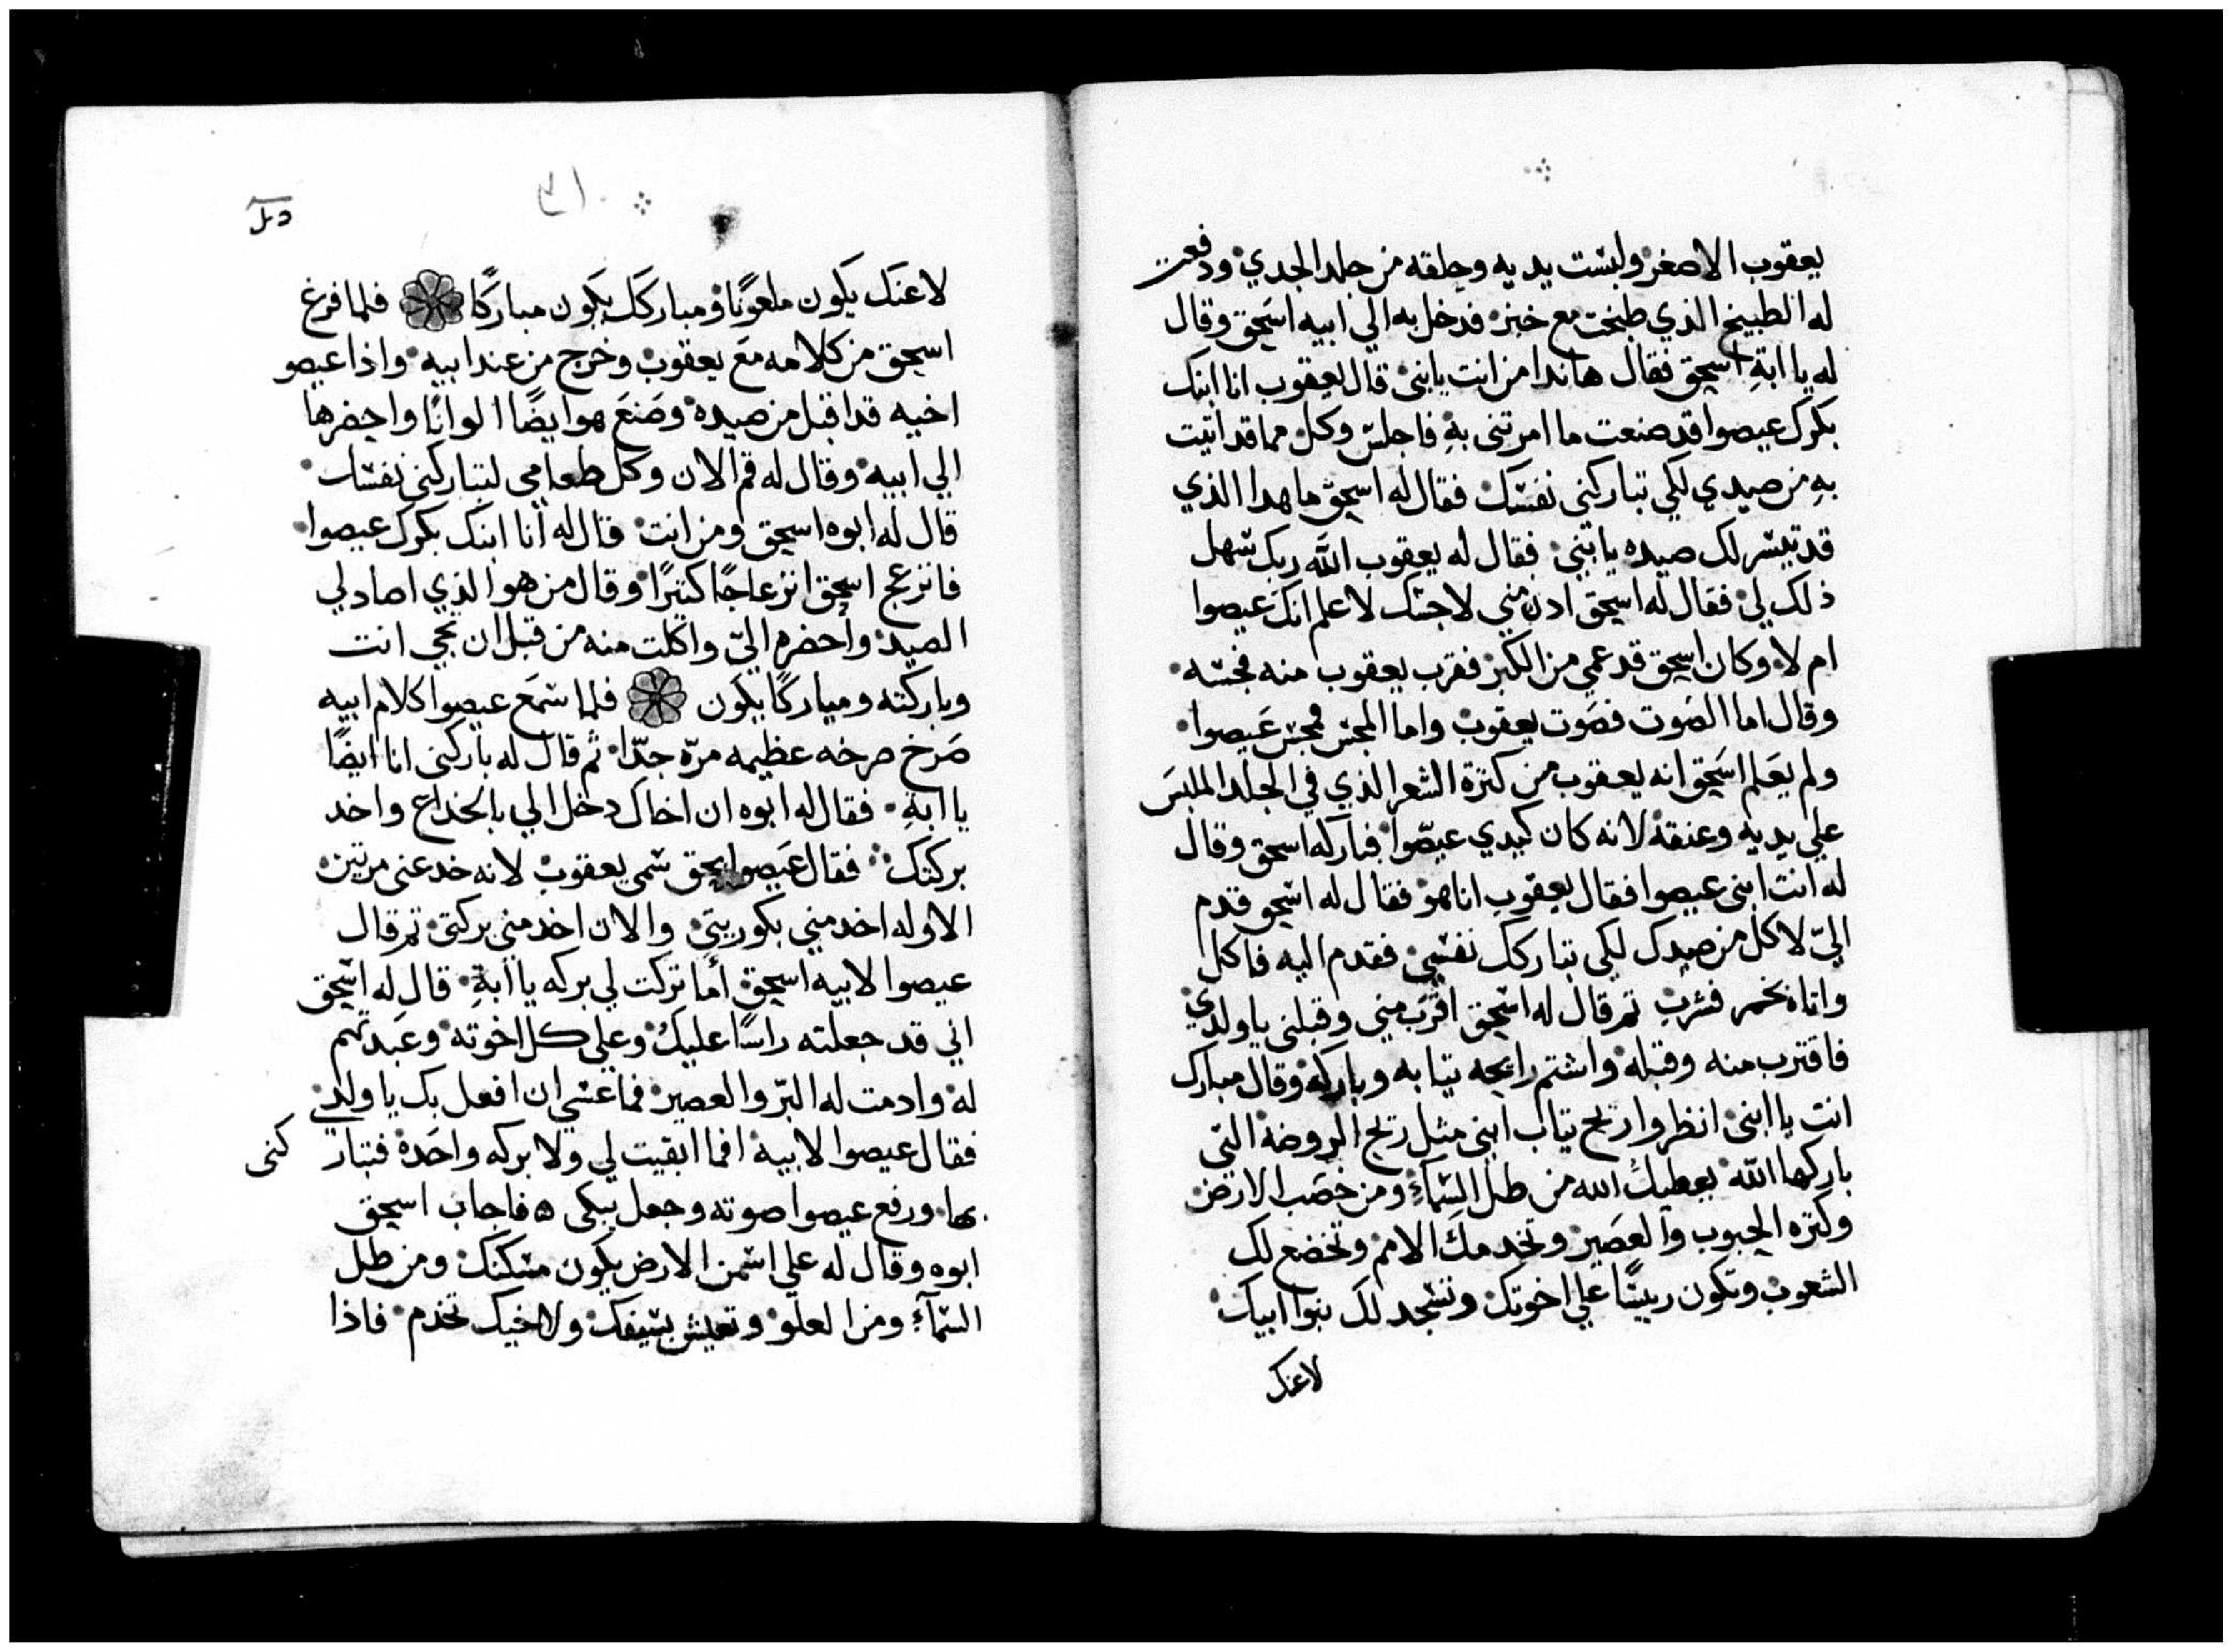 يعقوب الاصغر ولبست يديه وحلقه من جلد الجدي ودفعت
له الطبيخ الذي طبخت مع خبز فدخل به الي ابيه اسحق وقال
له يا ابة اسحق فقال هاندا من انت يابنى قال يعقوب انا ابنك
بكرك عيصوا قد صنعت ما امرتنى به فاجلس وكل مما قد اتيت
به من صيدي لكي تباركنى نفسك فقال له اسحق ما هدا الذي
قد تيسر لك صيده يابني فقال له يعقوب الله ربك سهل
ذلك لي فقال له اسحق ادن مني لاجسك لاعلم انك عيصوا
ام لا وكان اسحق قد عمي من الكبر فقرب يعقوب منه فجسه
وقال اما الصوت فصوت يعقوب واما المجس فمجس عيصوا
ولم يعلم اسحق انه يعقوب من كثرة الشعر الذي في الجلد الملبس
علي يديه وعنقه لانه كان كيدي عيصوا فباركه اسحق وقال
له انت ابنى عيصوا فقال يعقوب انا هو فقال له اسحق قدم
اليّ لاكل من صيدك لكي تباركك نفسي فقدم اليه فاكل
واتاه بخمر فشرب تم قال له اسحق اقترب مني وقبلنى ياولدي
فاقترب منه وقبله واشتم رايحه تيابه وباركه وقال مبارك
انت يا ابنى انظروا ريح تياب ابني مثل ريح الروضه التي
باركها الله يعطيك الله من طل السماء ومن خصب الارض
وكتره الحبوب والعصير وتخدمك الامم وتخضع لك
الشعوب وتكون رييسًا علي اخوتك وتسجد لك بنوا ابيك
لاعنك
لاعنك يكون ملعونًا ومباركك يكون مباركًا فلما فرغ
اسحق من كلامه مع يعقوب وخرج من عند ابيه واذا عيصو
اخيه قد اقبل من صيده وصنع هو ايضًا الوانًا واحضرها
الي ابيه وقال له قم الان وكل طعامي لتباركني نفسك
قال له ابوه اسحق ومن انت قال له انا ابنك بكرك عيصوا
فانزعج اسحق انزعاجًا كثيرًا وقال من هو الذي اصاد لي
الصيد واحضره اليّ واكلت منه من قبل ان تجي انت
وباركته ومباركًا يكون فلما سمع عيصوا كلام ابيه
صرخ صرخه عظيمه مرّه جدّا ثم قال له باركنى انا ايضًا
يا ابة فقال له ابوه ان اخاك دخل الي بالخداع واخد
بركتك فقال عيصوا بحق سمى يعقوب لانه خدعنى مرتين
الاوله اخد مني بكوريتي والان اخد مني بركتي تم قال
عيصوا لابيه اسحق أما تركت لي بركه يا ابة قال له اسحق
اني قد جعلته راسًا عليك وعلي كل اخوته وعبدتهم
له وادمت له البرّ والعصير فما عسي ان افعل بك ياولدي
فقال عيصوا لابيه افما ابقيت لي ولا بركه واحدة فتبار كنى
بها ورفع عيصوا صوته وجعل يبكى فاجاب اسحق
ابوه وقال له علي اسمن الارض يكون مسكنك ومن طل
السمآء ومن العلو وتعيش بسيفك ولاخيك تخدم فاذا